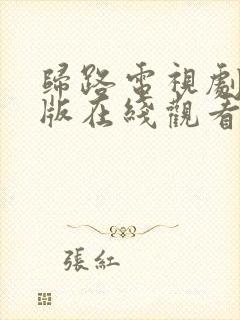 歸路電視劇
版在綫觀看
張紅